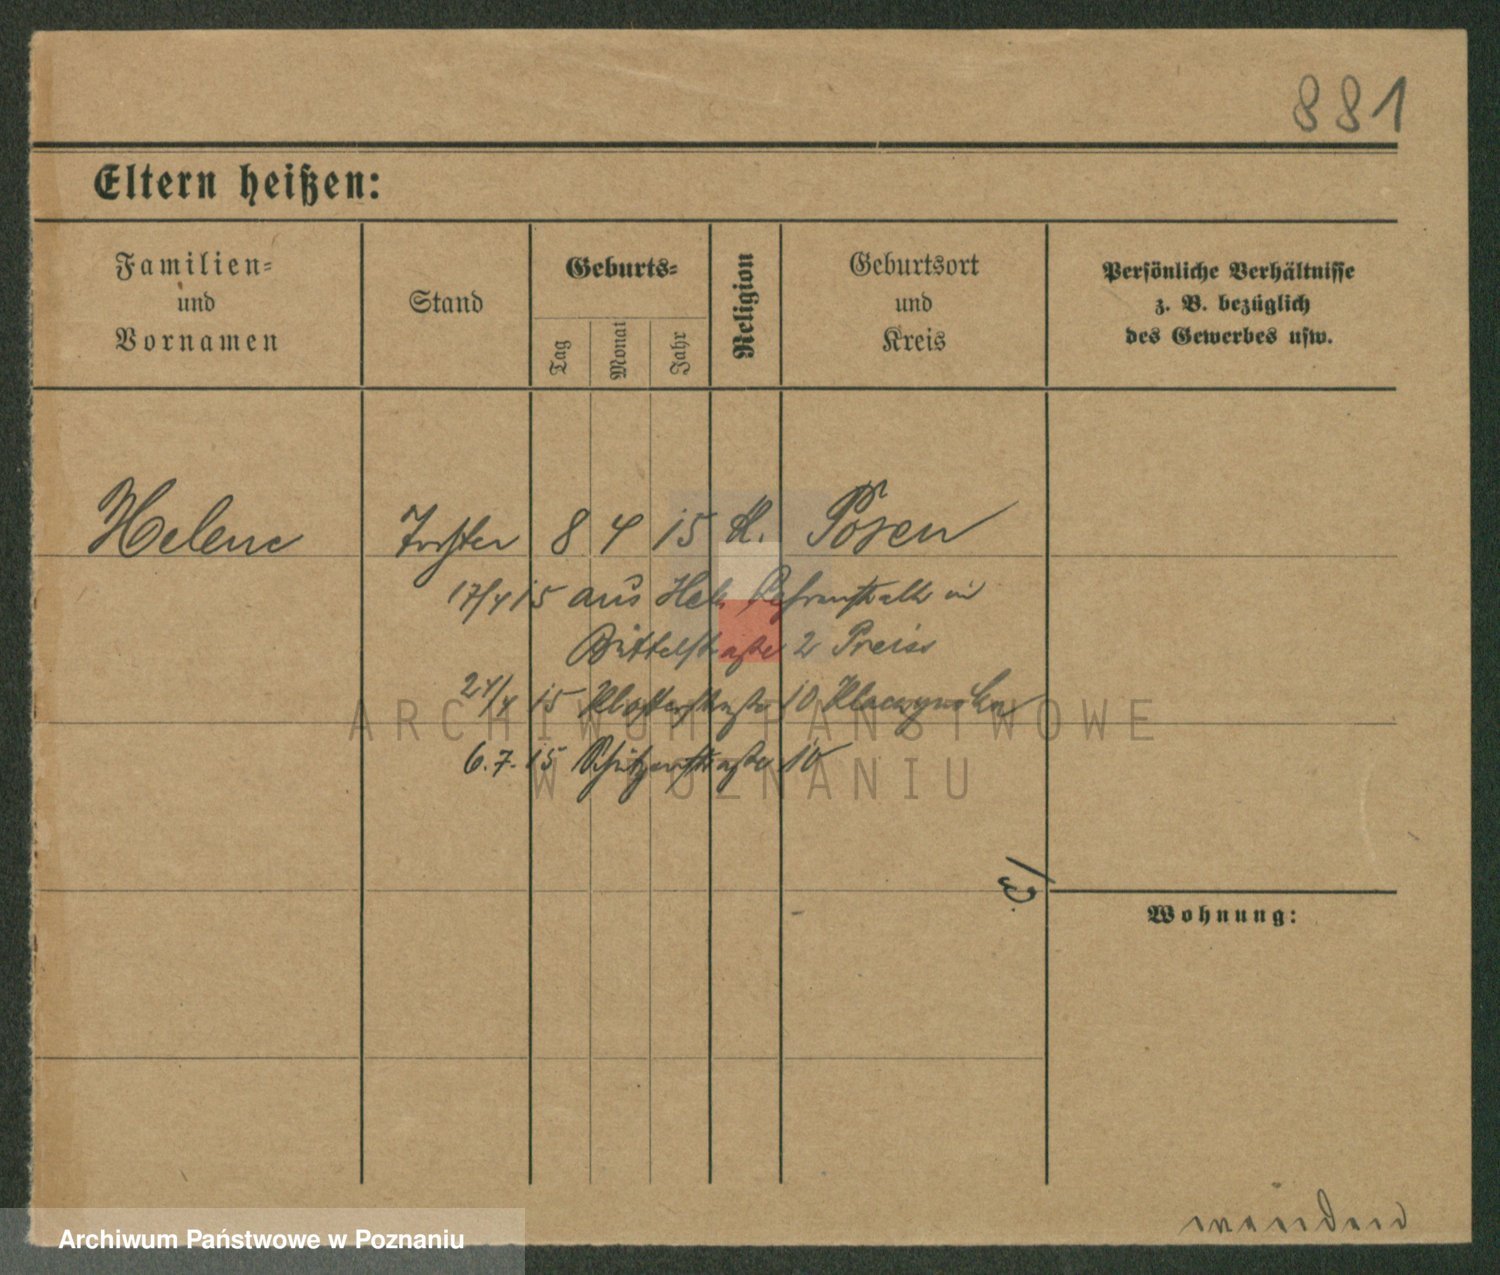 881
Eltern heißen:
Familien-
und
Vornamen
Stand
Geburts-
Tag
Monat
Jahr
Religion
Geburtsort
und
Kreis
Persönliche Verhältnisse
z. B. bezüglich
des Gewerbes usw.
Helene Tochter 8 4 15 k. Posen
17/4 15 aus Heb. Lehranstalt in
Bittelstraße 2 Preiss
24/4 15 Klosterstraße 10 Klaczynska
6.7.15 Schützenstraße 10
ARCHIWUM PAŃSTWOWE
W POZNANIU
Wohnung:
wenden
Archiwum Państwowe w Poznaniu